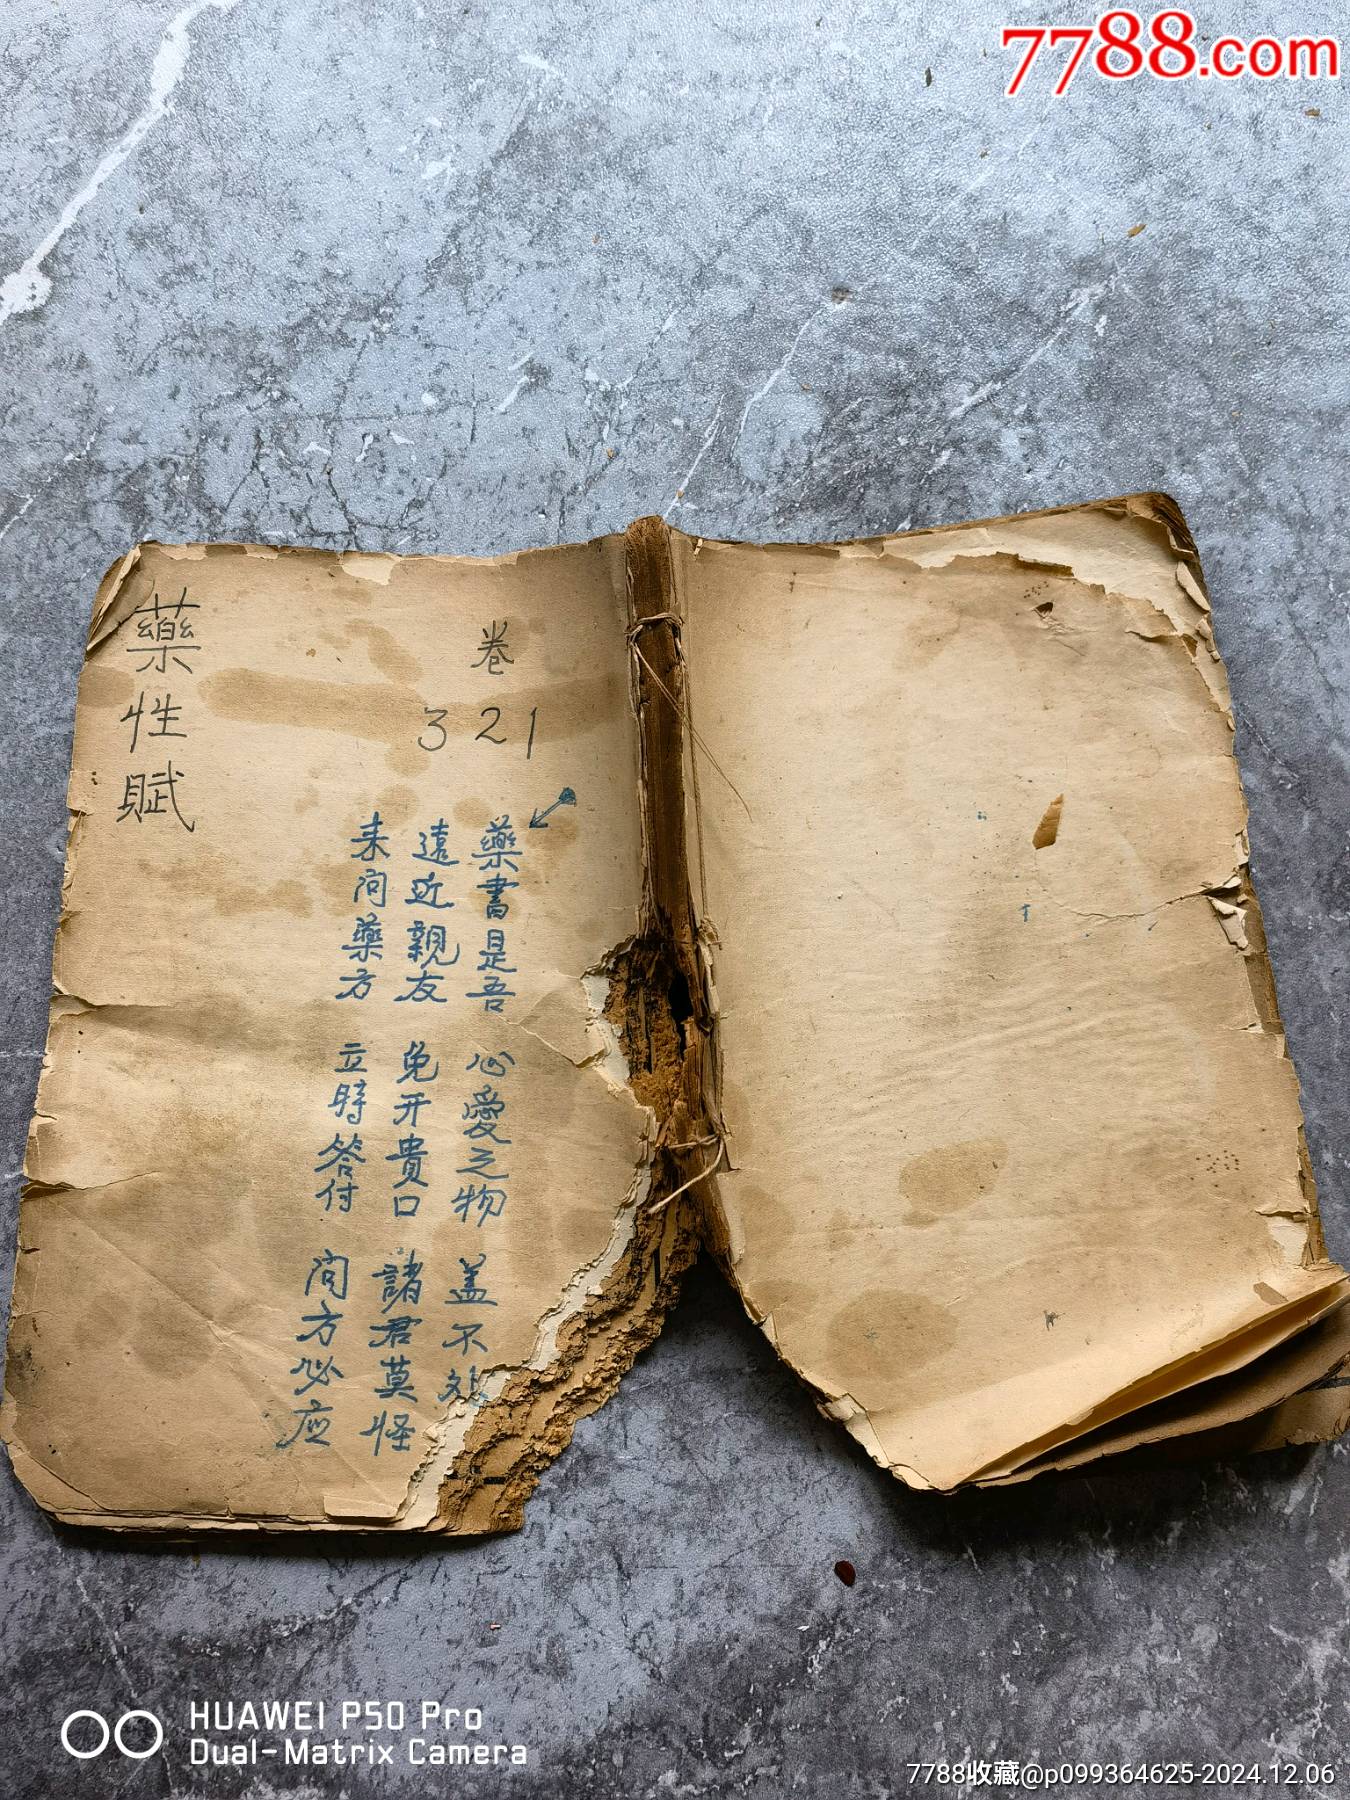 7788.com
卷
1 2 3
藥書是吾 心愛之物 盖不
遠近親友 免开貴口 諸君莫怪
来问藥方 立時答付 问方必应
藥性賦
HUAWEI P50 Pro
Dual-Matrix Camera
7788收藏@p099364625-2024.12.06